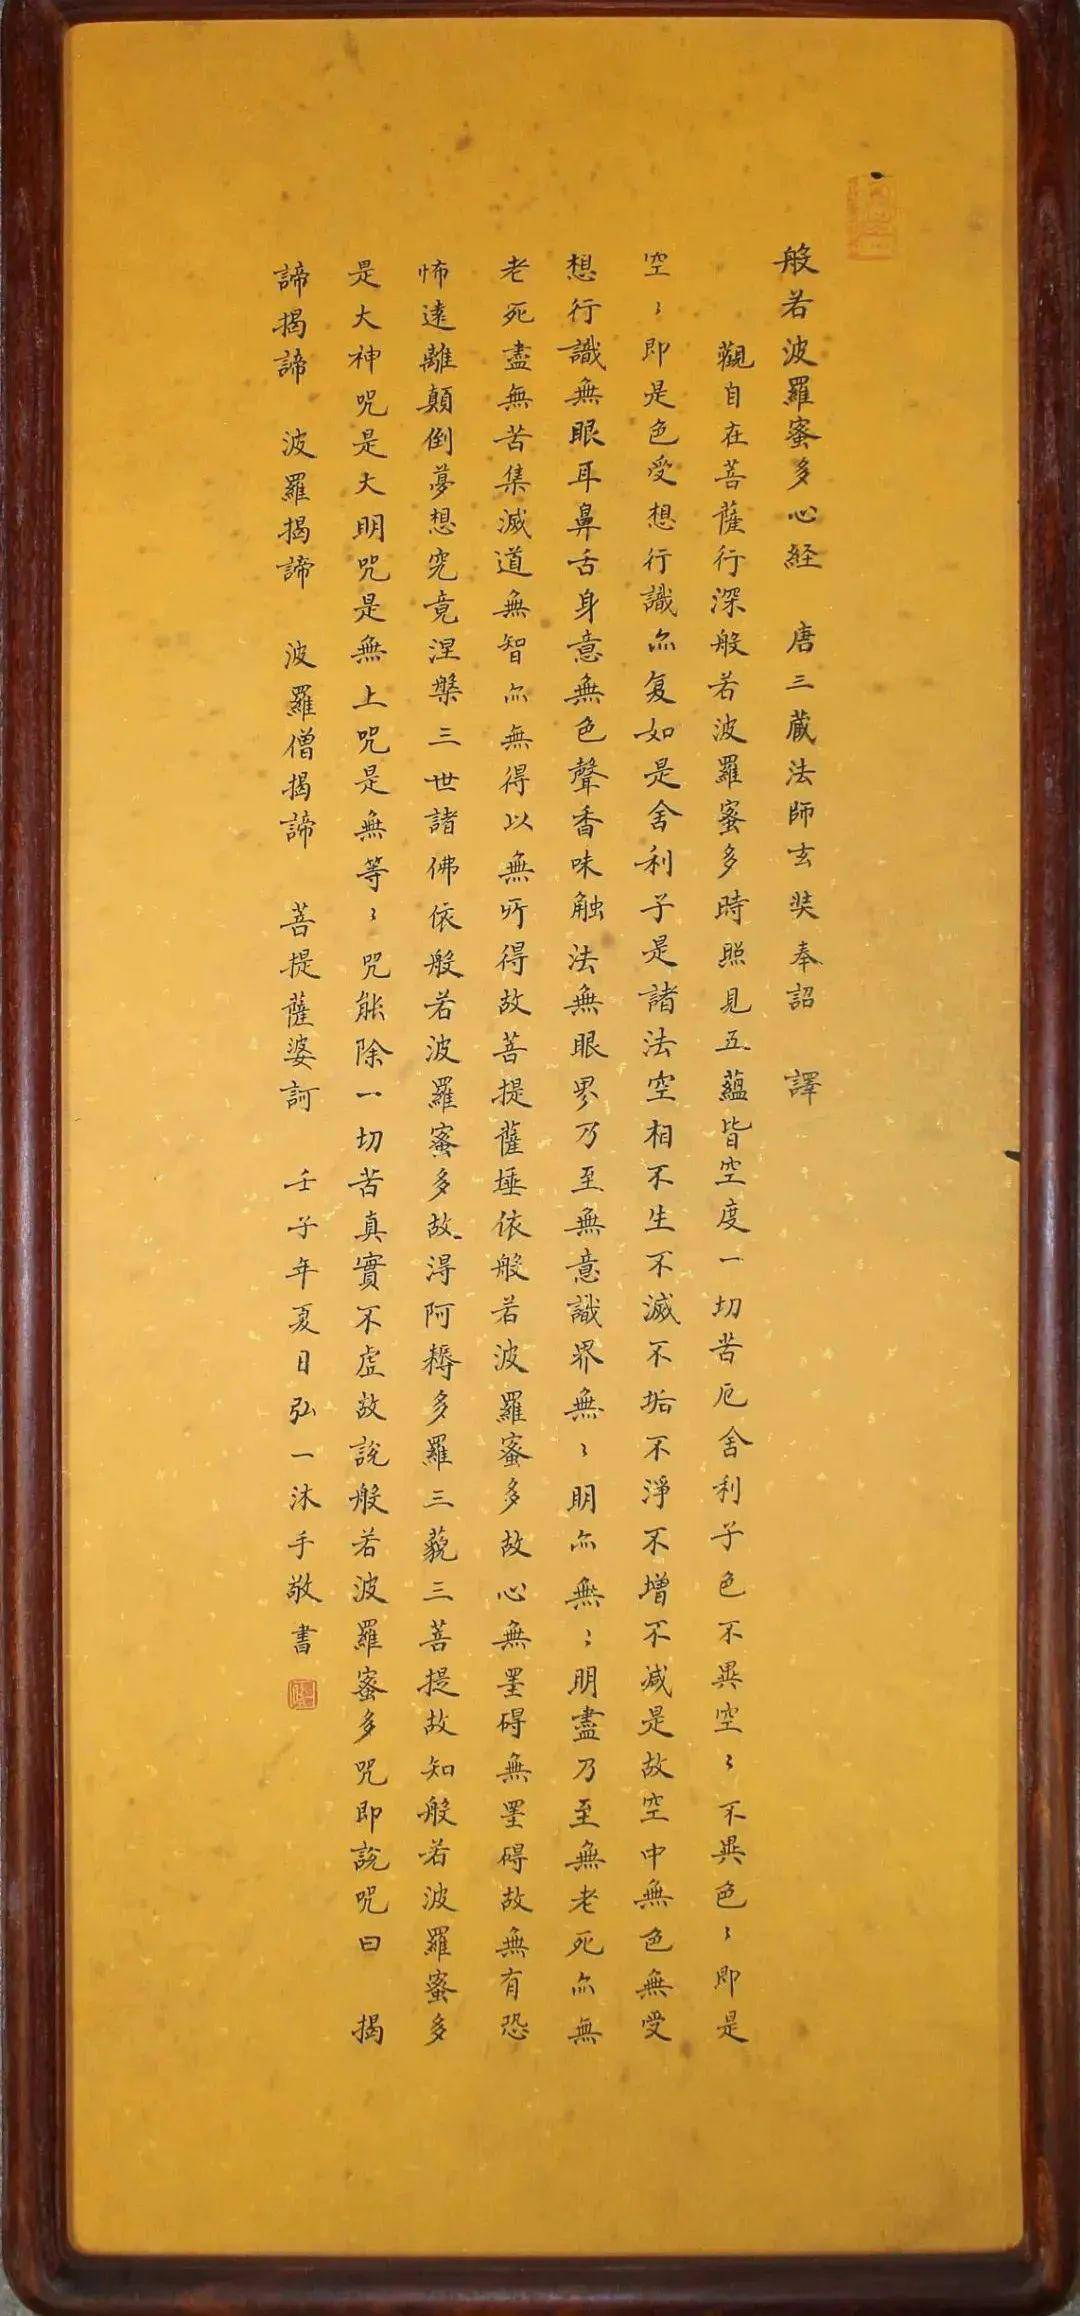 般若波羅蜜多心経 唐三蔵法師玄奘奉詔 譯
觀自在菩薩行深般若波羅蜜多時照見五蘊皆空度一切苦厄舍利子色不異空〻不異色〻即是
空〻即是色受想行識亦复如是舍利子是諸法空相不生不滅不垢不淨不增不減是故空中無色無受
想行識無眼耳鼻舌身意無色聲香味触法無眼界乃至無意識界無〻明亦無〻明盡乃至無老死亦無
老死盡無苦集滅道無智亦無得以無所得故菩提薩埵依般若波羅蜜多故心無罣碍無罣碍故無有恐
怖遠離顛倒夢想究竟涅槃三世諸佛依般若波羅蜜多故得阿耨多羅三藐三菩提故知般若波羅蜜多
是大神咒是大明咒是無上咒是無等〻咒能除一切苦真實不虛故說般若波羅蜜多咒即說咒曰 揭
諦揭諦 波羅揭諦 波羅僧揭諦 菩提薩婆訶 壬子年夏日弘一沐手敬書